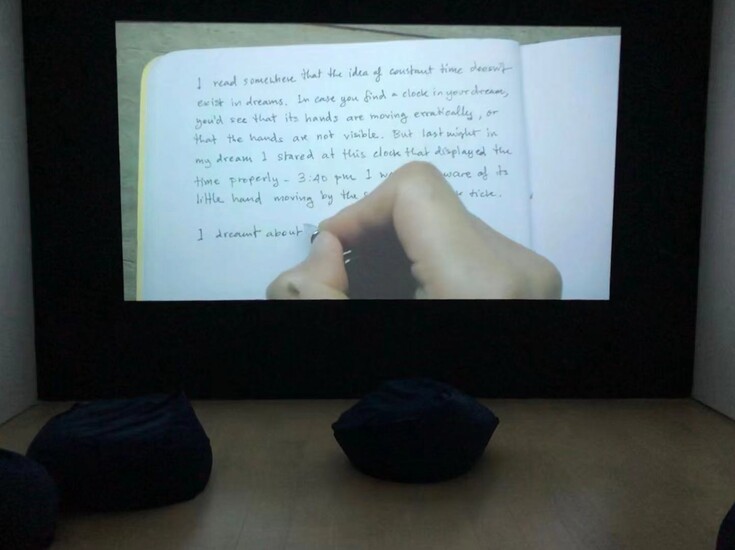 I read somewhere that the idea of constant time doesn't
exist in dreams. In case you find a clock in your dream,
you'd see that its hands are moving erratically, or
that the hands are not visible. But last night in
my dream I stared at this clock that displayed the
time properly - 3:40 pm. I of its
little hand moving by the tick.
I dreamt about